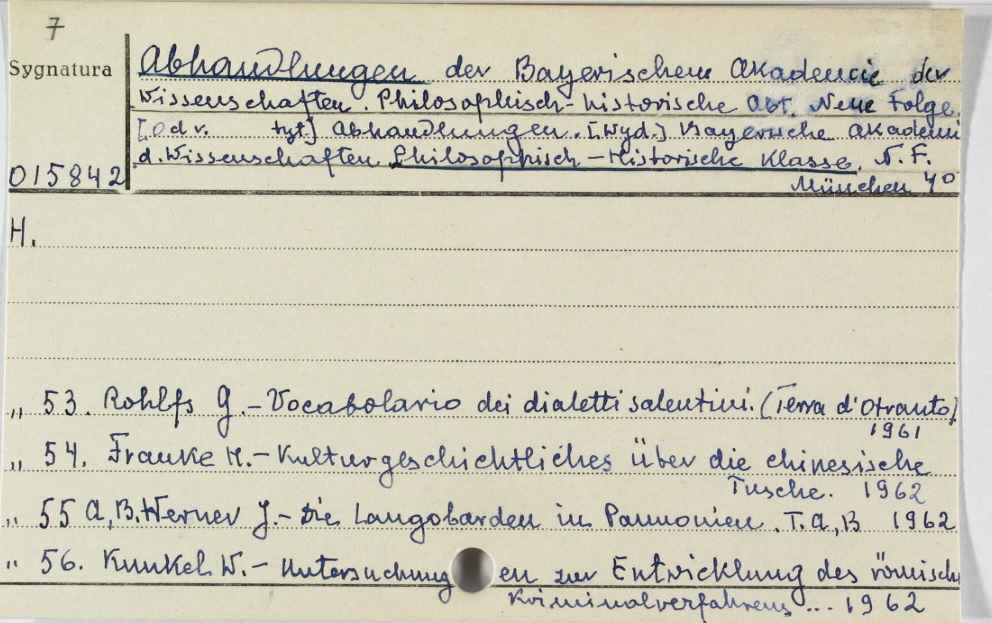 7
Sygnatura
Abhandlungen der Bayerischen Akademie der
Wissenschaften. Philosophisch-historische Abt. Neue Folge.
[Odr. tyt.] Abhandlungen. [Wyd.] Bayerische Akademi
d. Wissenschaften Philosophisch-Historische Klasse. N.F.
015842
München 4°
H.
„ 53. Rohlfs G.- Vocabolario dei dialetti salentini. (Terra d'Otranto)
1961
„ 54. Franke H.- Kulturgeschichtliches über die chinesische
Tusche. 1962
„ 55 A,B. Werner J.- Die Langobarden in Pannonien. T.A,B 1962
„ 56. Kunkel W.- Untersuchungen zur Entwicklung des römisch
Kriminalverfahrens ... 1962